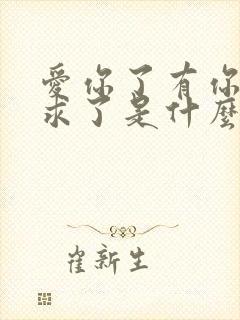 愛你了有你
求了是什麼
崔新生